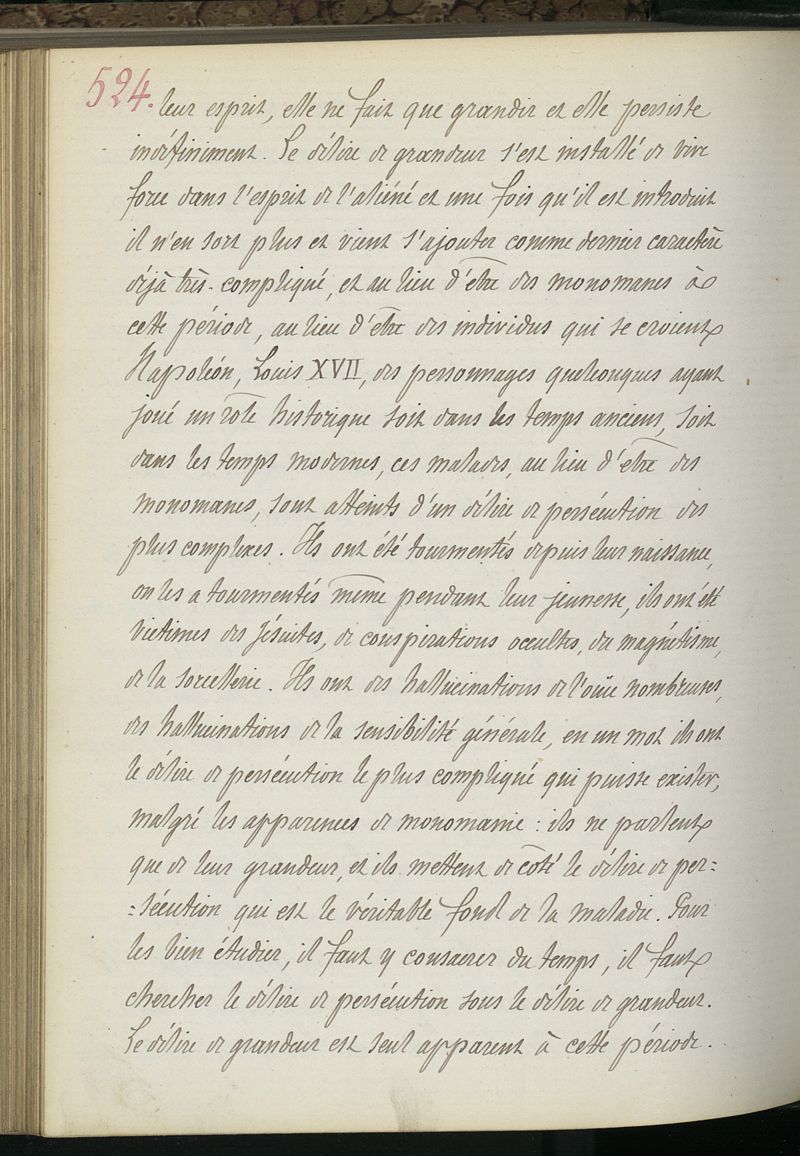 524.
leur esprit, elle ne fait que grandir et elle persiste
indéfiniment. Le délire de grandeur s'est installé de vive
force dans l'esprit de l'aliéné et une fois qu'il est introduit
il n'en sort plus et vient s'ajouter comme dernier caractère
déjà très-compliqué, et au lieu d'être des monomanes à
cette période, au lieu d'être des individus qui se croient
Napoléon, Louis XVII, des personnages quelconques ayant
joué un rôle historique soit dans les temps anciens, soit
dans les temps modernes, ces malades, au lieu d'être des
monomanes, sont atteints d'un délire de persécution des
plus complexes. Ils ont été tourmentés depuis leur naissance,
on les a tourmentés même pendant leur jeunesse, ils ont été
victimes des Jésuites, de conspirations occultes, du magnétisme,
de la sorcellerie. Ils ont des hallucinations de l'ouïe nombreuses,
des hallucinations de la sensibilité générale, en un mot ils ont
le délire de persécution le plus compliqué qui puisse exister,
malgré les apparences de monomanie : ils ne parlent
que de leur grandeur, et ils mettent de côté le délire de per=
=sécution qui est le véritable fond de la maladie. Pour
les bien étudier, il faut y consacrer du temps, il faut
chercher le délire de persécution sous le délire de grandeur.
Le délire de grandeur est seul apparent à cette période.